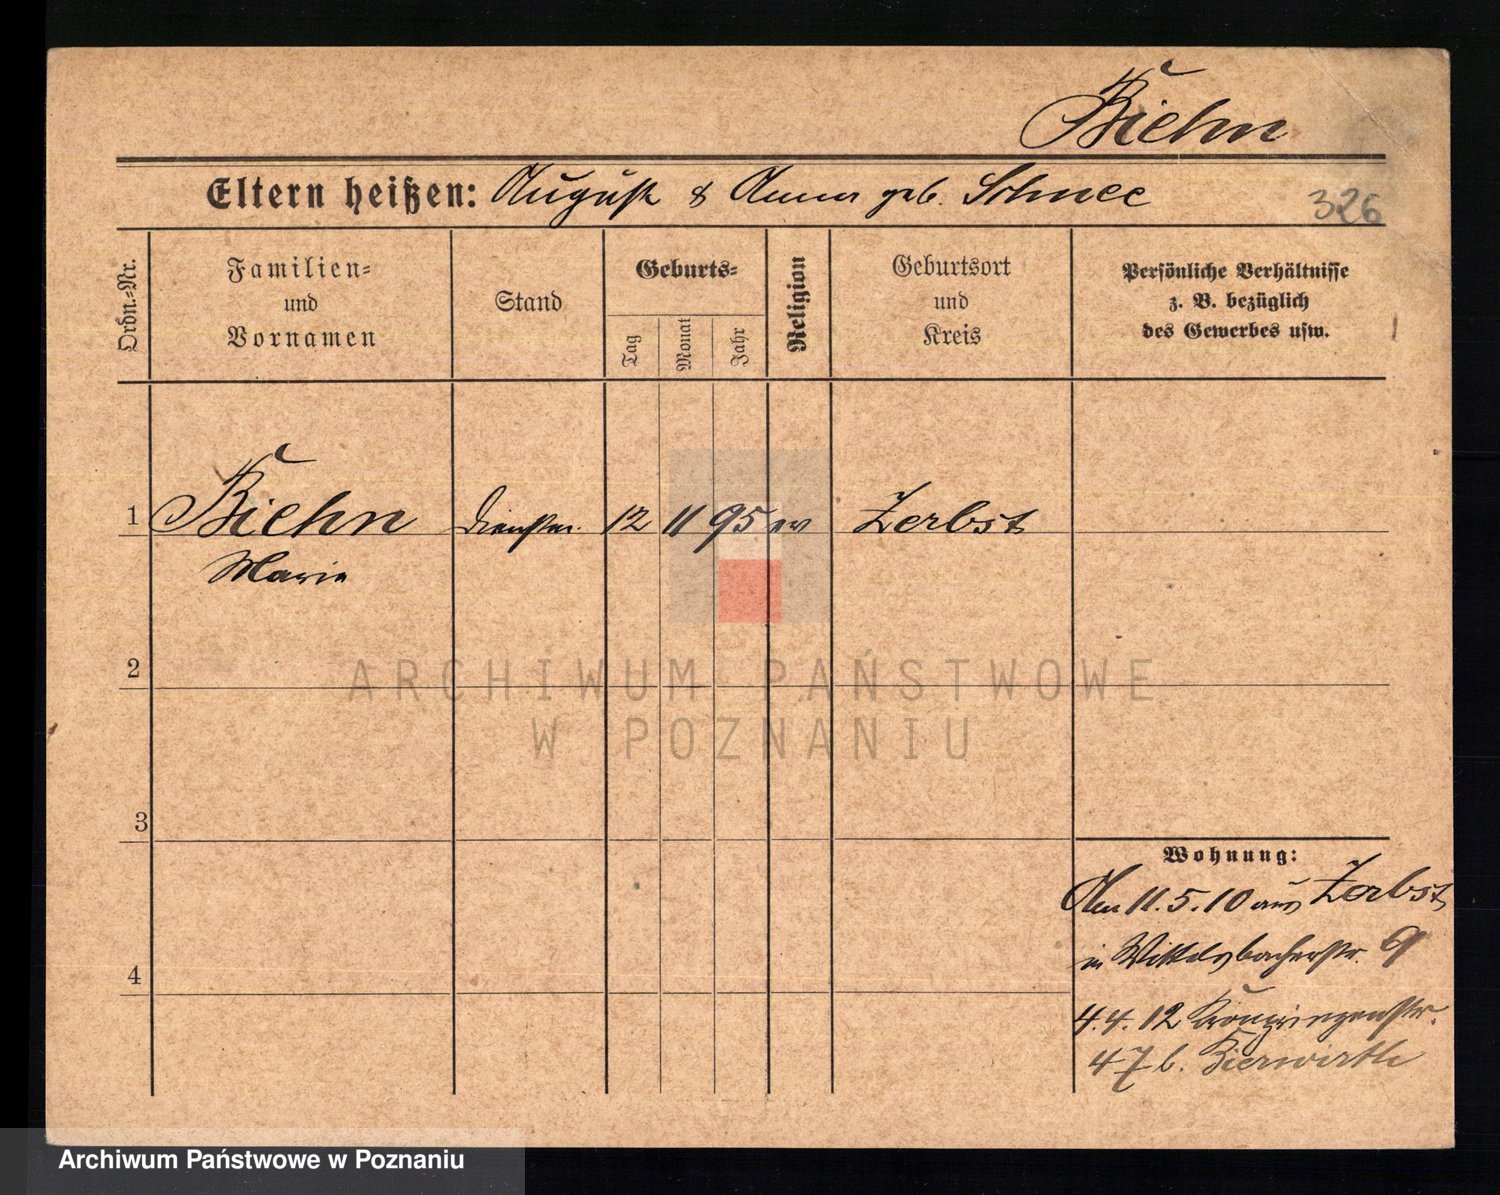 Biehn
Eltern heißen: August & Anna geb. Schnee
326
Ordn.-Nr.
Familien-
und
Vornamen
Stand
Geburts-
Tag
Monat
Jahr
Religion
Geburtsort
und
Kreis
Persönliche Verhältnisse
z. B. bezüglich
des Gewerbes usw.
1 Biehn Dienstm. 12 11 95 ev Zerbst
Marie
2
3
4
Wohnung:
Am 11.5.10 aus Zerbst
in Wittelsbacherstr. 9
4.4.12 Kronprinzenstr.
47 b. Bierwirth
ARCHIWUM PAŃSTWOWE
W POZNANIU
Archiwum Państwowe w Poznaniu